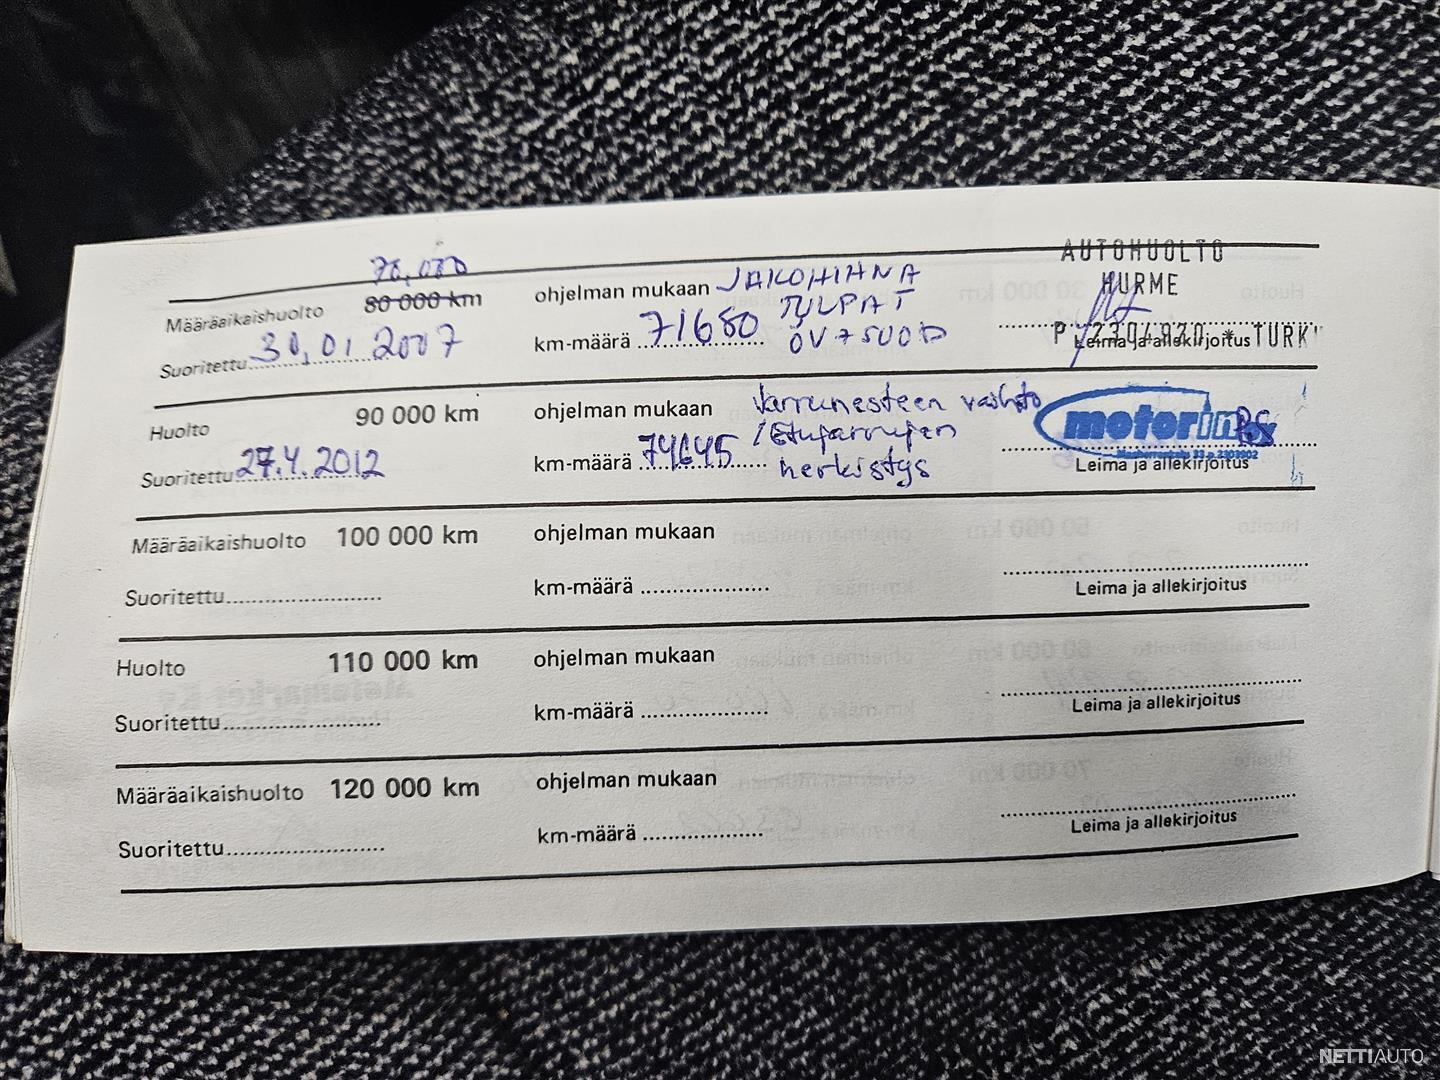 70,000
Määräaikaishuolto 80 000 km ohjelman mukaan JAKOHIHNA AUTOHUOLTO
TULPAT HURME
Suoritettu 30,01 2007 km-määrä 71680 ÖV 7500D Leima ja allekirjoitus TURK
Huolto 90 000 km ohjelman mukaan Jarrunesteen vaihto motorin
Suoritettu 27.4.2012 km-määrä 74645 / Etujarrujen Leima ja allekirjoitus
herkistys
Määräaikaishuolto 100 000 km ohjelman mukaan
Suoritettu km-määrä Leima ja allekirjoitus
Huolto 110 000 km ohjelman mukaan
Suoritettu km-määrä Leima ja allekirjoitus
Määräaikaishuolto 120 000 km ohjelman mukaan
Suoritettu km-määrä Leima ja allekirjoitus
NETTIAUTO